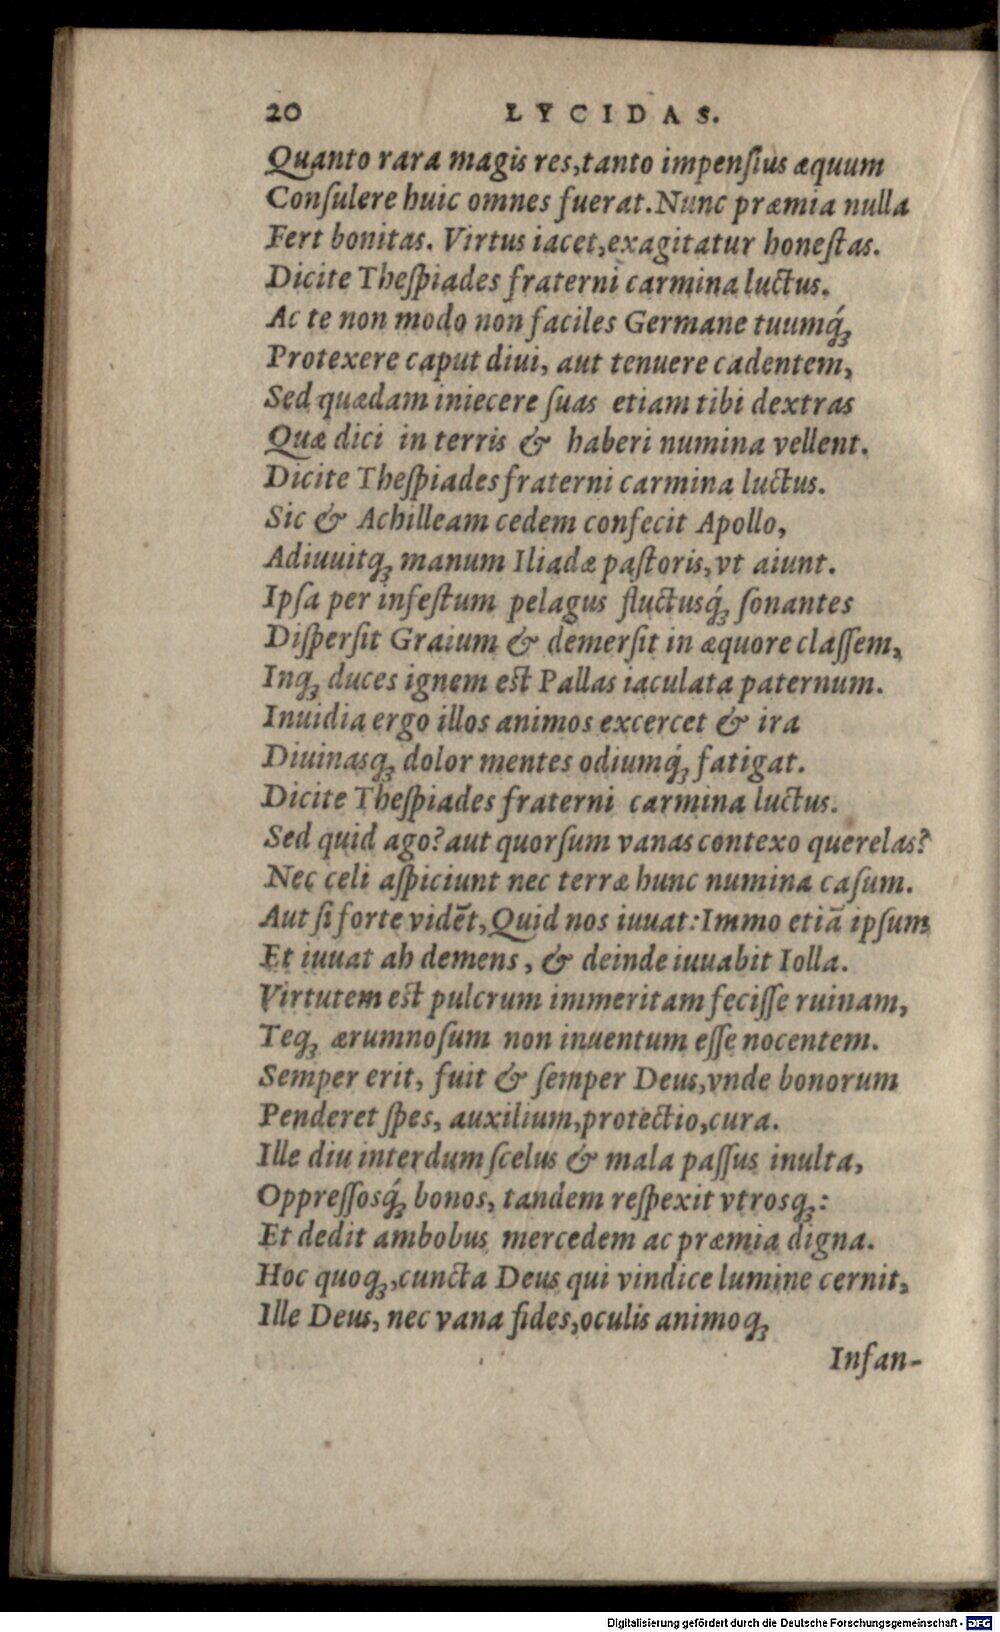 20 LYCIDAS.
Quanto rara magis res,tanto impenſius æquum
Conſulere huic omnes fuerat.Nunc præmia nulla
Fert bonitas. Virtus iacet,exagitatur honeſtas.
Dicite Theſpiades fraterni carmina luctus.
Ac te non modo non faciles Germane tuumq́ꝫ
Protexere caput diui, aut tenuere cadentem,
Sed quædam iniecere ſuas etiam tibi dextras
Quæ dici in terris & haberi numina vellent.
Dicite Theſpiades fraterni carmina luctus.
Sic & Achilleam cedem confecit Apollo,
Adiuuitqꝫ manum Iliadæ paſtoris,vt aiunt.
Ipſa per infeſtum pelagus fluctusq́ꝫ ſonantes
Diſperſit Graium & demerſit in æquore claſſem,
Inqꝫ duces ignem est Pallas iaculata paternum.
Inuidia ergo illos animos excercet & ira
Diuinasqꝫ dolor mentes odiumq́ꝫ fatigat.
Dicite Theſpiades fraterni carmina luctus.
Sed quid ago? aut quorſum vanas contexo querelas?
Nec celi aſpiciunt nec terræ hunc numina caſum.
Aut ſi forte vidēt,Quid nos iuuat:Immo etiā ipſum
Et iuuat ah demens, & deinde iuuabit Iolla.
Virtutem est pulcrum immeritam feciſſe ruinam,
Teqꝫ ærumnoſum non inuentum eſſe nocentem.
Semper erit, fuit & ſemper Deus,vnde bonorum
Penderet ſpes, auxilium,protectio,cura.
Ille diu interdum ſcelus & mala paſſus inulta,
Oppreſſosq́ꝫ bonos, tandem reſpexit vtrosqꝫ:
Et dedit ambobus mercedem ac præmia digna.
Hoc quoqꝫ,cuncta Deus qui vindice lumine cernit,
Ille Deus, nec vana fides,oculis animoqꝫ
Infan-
Digitalisierung gefördert durch die Deutsche Forschungsgemeinschaft - DFG